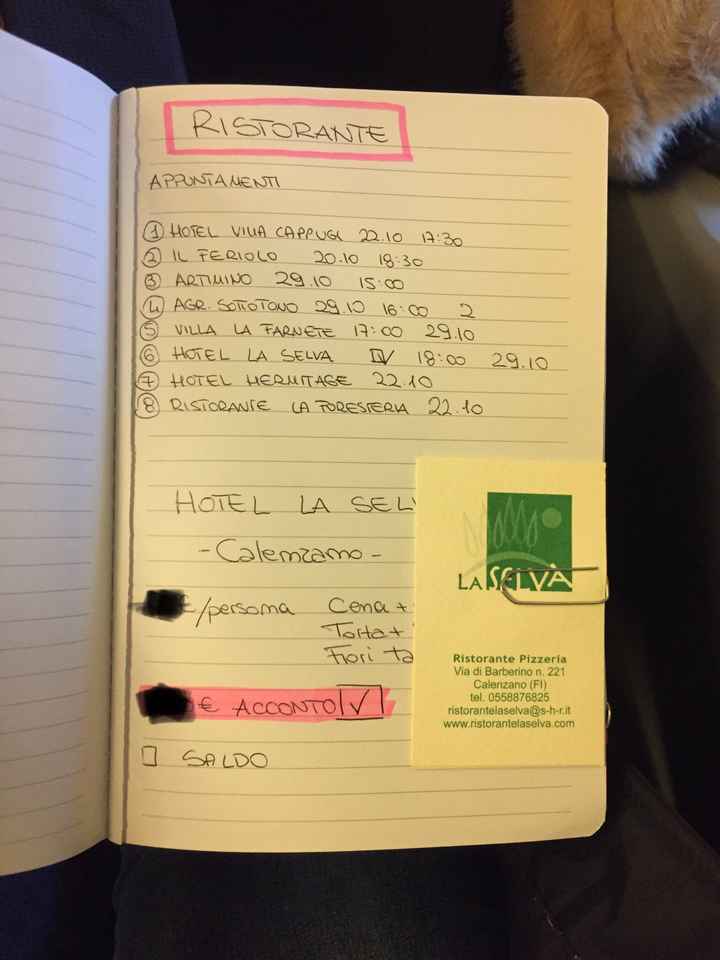 RISTORANTE
APPUNTAMENTI
1 HOTEL VILLA CAPPUGI 22.10 17:30
2 IL FERIOLO 20.10 18:30
3 ARTIMINO 29.10 15:00
4 AGR. SOTTOTONO 29.10 16:00 2
5 VILLA LA FARNETE 17:00 29.10
6 HOTEL LA SELVA 18:00 29.10
7 HOTEL HERMITAGE 22.10
8 RISTORANTE LA FORESTERIA 22.10
HOTEL LA SELV
- Calenzano -
€/persona Cena +
Torta +
Fiori ta
€ ACCONTO
SALDO
LA SELVA
Ristorante Pizzeria
Via di Barberino n. 221
Calenzano (FI)
tel. 0558876825
ristorantelaselva@s-h-r.it
www.ristorantelaselva.com